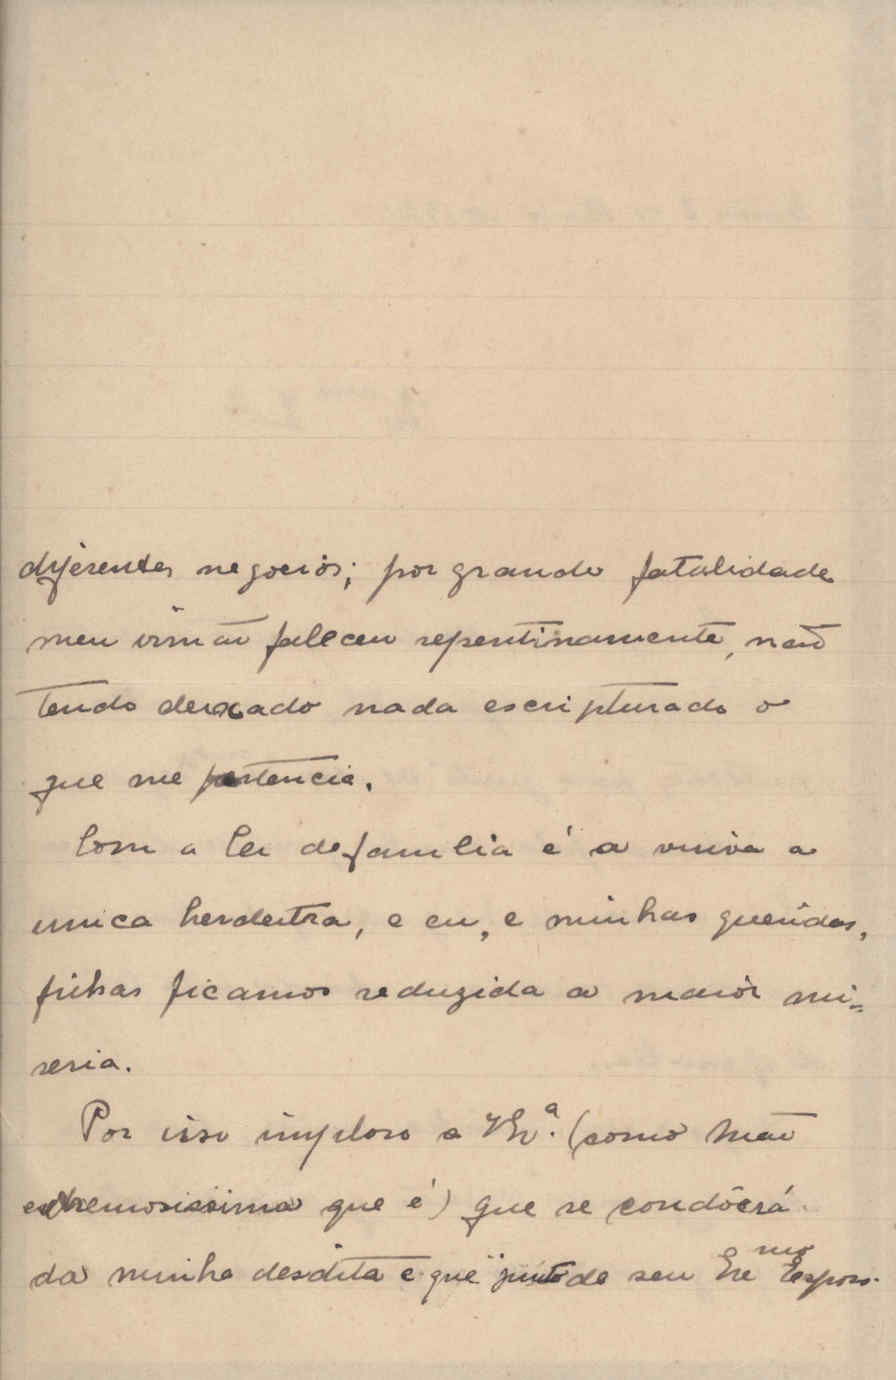 diferentes negocios; por grande fatalidade
meu irmão faleceu repentinamente, não
tendo deixado nada escripturado o
que me pertencia.
Com a lei de familia é a viuva a
unica herdeitra, e eu, e minhas queridas,
filhas ficamos reduzida a maiór mi=
seria.
Por isso imploro a (como Mãe
extremosissima que é) que se condoerá
da minha desdita e que junto de seu Exᵐᵒ Esposo.